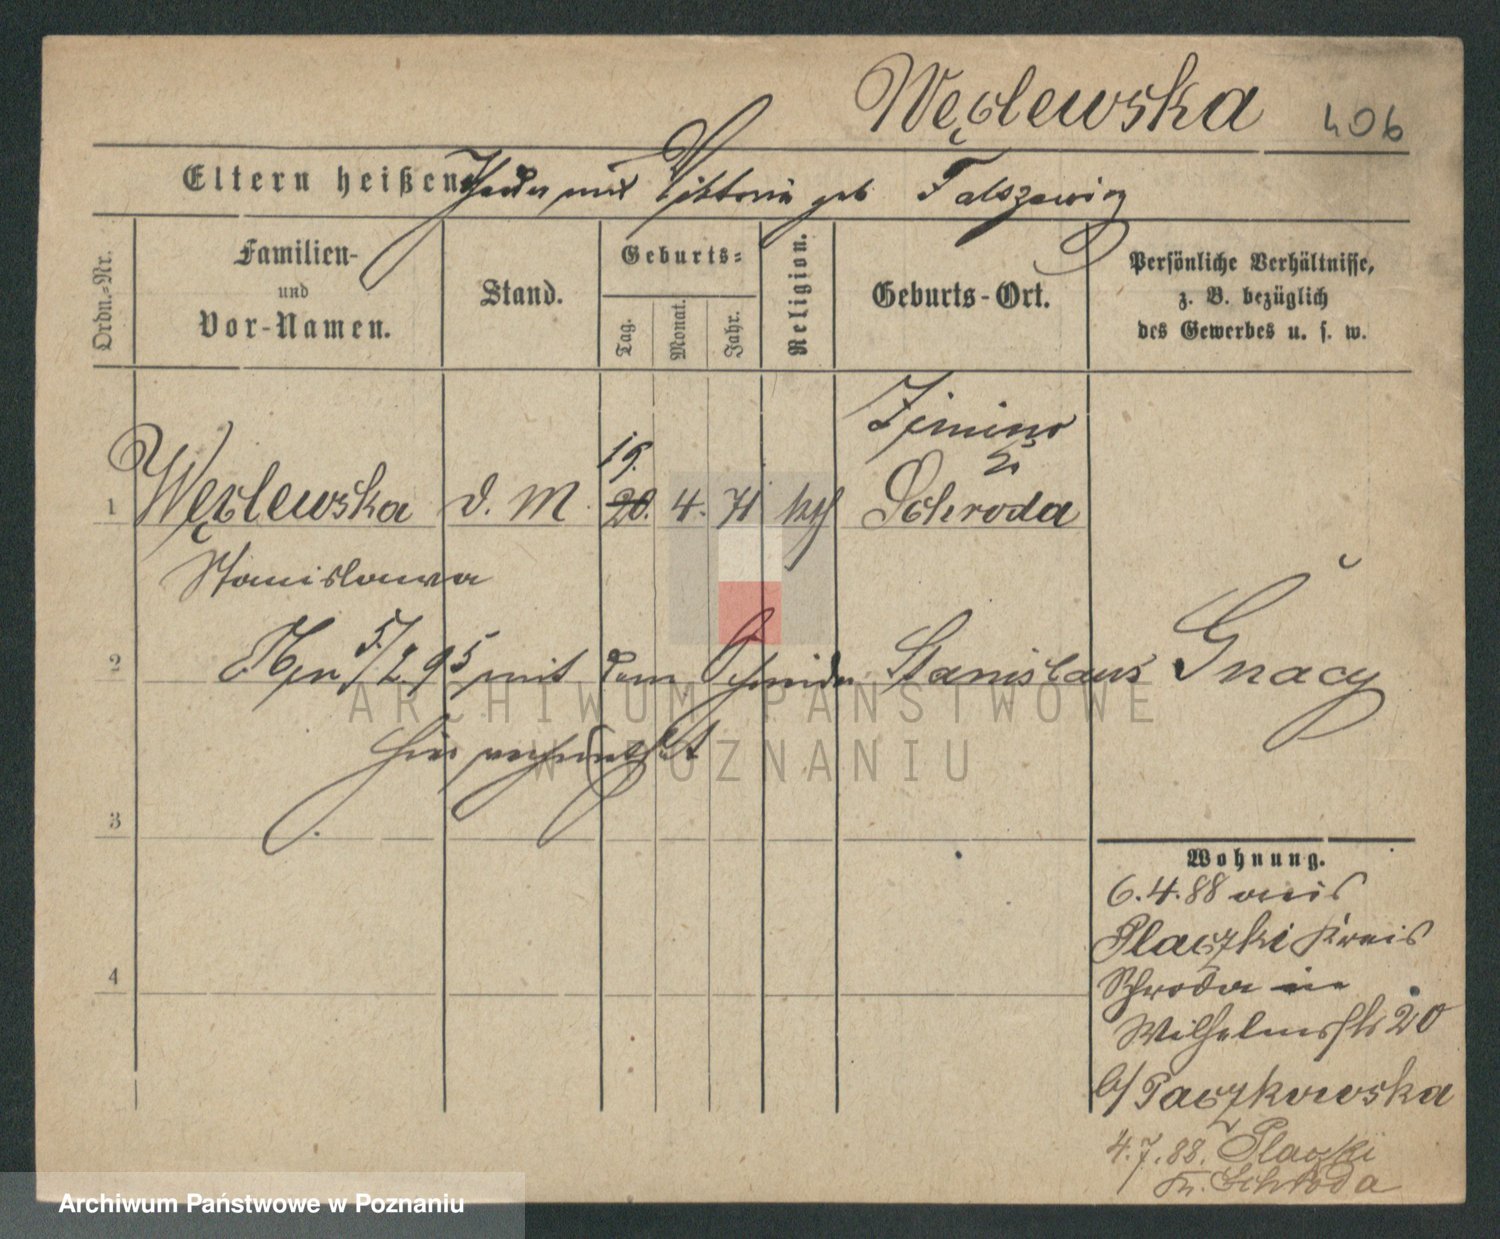 Węclewska 406
Eltern heißen und Viktoria geb
Ordn.-Nr.
Familien-
und
Vor-Namen.
Stand.
Geburts-
Tag.
Monat.
Jahr.
Religion.
Geburts-Ort.
Persönliche Verhältnisse,
z. B. bezüglich
des Gewerbes u. s. w.
Zimino
19.
1 Węclewska d. M 20. 4. 71 kth Schroda
Stanislawa
2 5/2 95 mit dem Schneider Stanislaus Gnacy
hier verheirathet
3
Wohnung.
6.4.88 aus
Placzki Kreis
4
Schroda in
Wilhelmsstr 20
b/ Paczkowska
4.7.88. Placzki
Kr. Schroda
ARCHIWUM PAŃSTWOWE
W POZNANIU
Archiwum Państwowe w Poznaniu